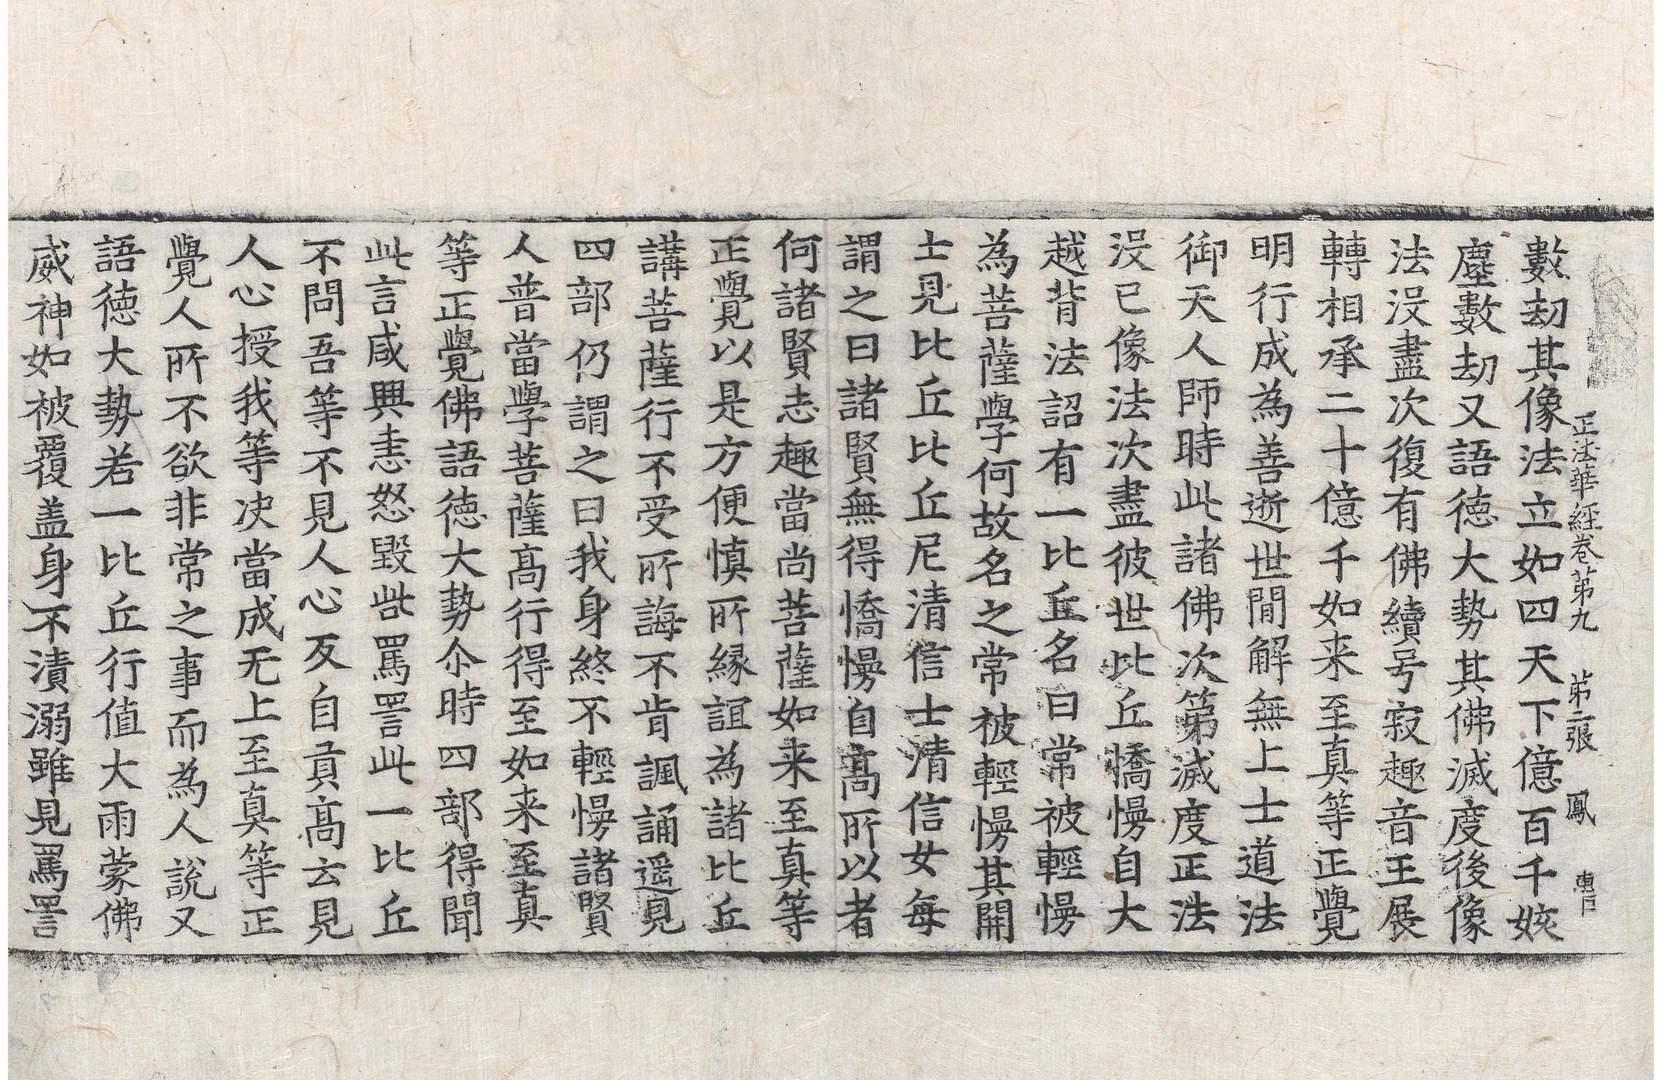 正法華經卷第九　第二張　鳳
數劫其像法立如四天下億百千姟
塵數劫又語德大勢其佛滅度後像
法没盡次復有佛續号寂趣音王展
轉相承二十億千如来至真等正覺
明行成為善逝世閒解無上士道法
御天人師時此諸佛次第滅度正法
没已像法次盡彼世比丘憍慢自大
越背法詔有一比丘名曰常被輕慢
為菩薩學何故名之常被輕慢其開
士見比丘比丘尼清信士清信女每
謂之曰諸賢無得憍慢自高所以者
何諸賢志趣當尚菩薩如来至真等
正覺以是方便慎所緣誼為諸比丘
講菩薩行不受所誨不肯諷誦遥見
四部仍謂之曰我身終不輕慢諸賢
人普當學菩薩高行得至如来至真
等正覺佛語德大勢尒時四部得聞
此言咸興恚怒毀呰罵詈此一比丘
不問吾等不見人心反自貢高云見
人心授我等决當成无上至真等正
覺人所不欲非常之事而為人說又
語德大勢若一比丘行值大雨蒙佛
威神如被覆盖身不漬溺雖見罵詈